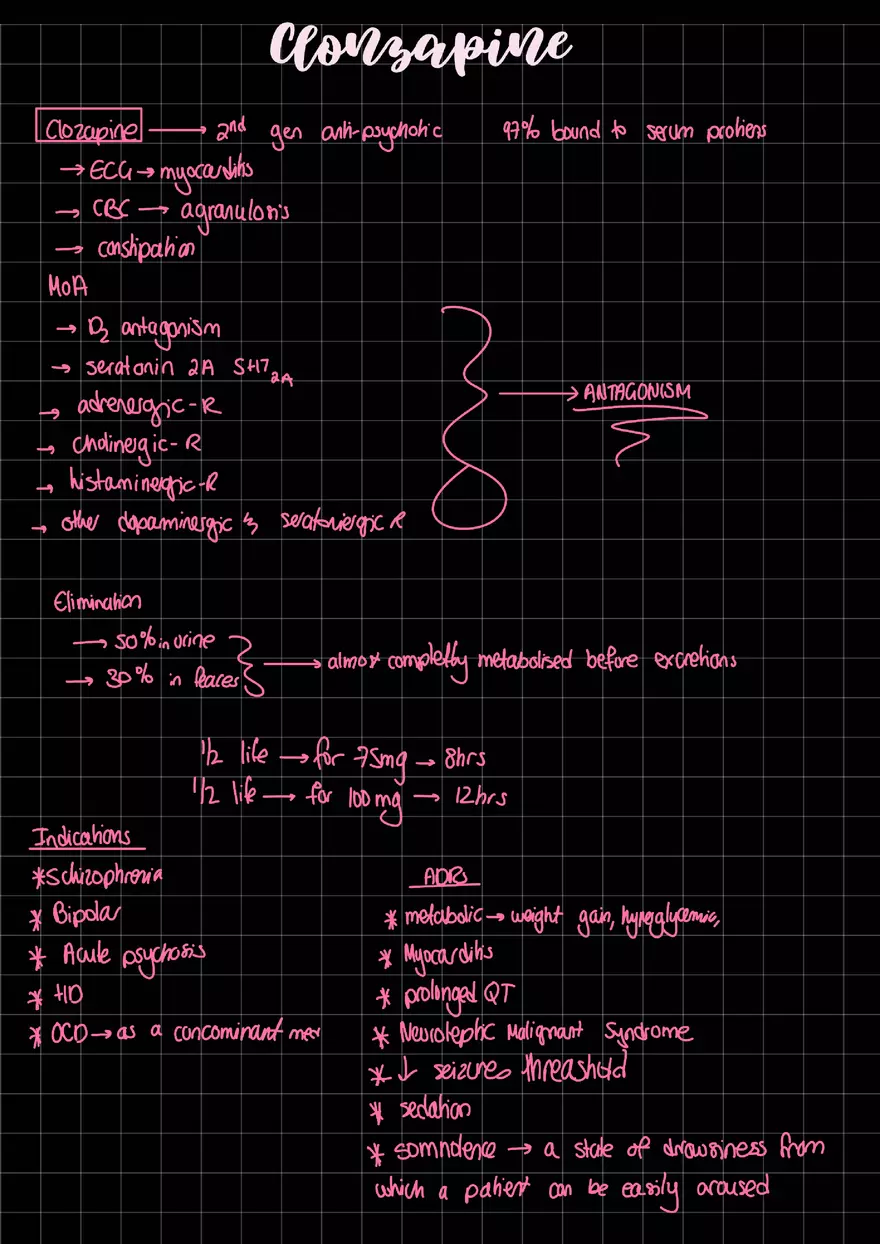 Clonzapine
Clozapine → 2nd gen anti-psychotic 97% bound to serum protiens
→ ECG → myocarditis
→ CBC → agranulosis
→ constipation
MoA
→ D2 antagonism
→ seratonin 2A 5H72A
→ adrenergic-R
→ cholinergic-R
→ histaminergic-R
→ other dopaminergic & seratoniergic R
→ ANTAGONISM
Elimination
→ 50% in urine
→ 30% in feaces
→ almost completly metabolised before excretions
1/2 life → for 75mg → 8hrs
1/2 life → for 100mg → 12hrs
Indications
* Schizophrenia
* Bipolar
* Acute psychosis
* HD
* OCD → as a concominant med
ADRs
* metabolic → weight gain, hyperglycemic,
* Myocarditis
* prolonged QT
* Neuroleptic Malignant Syndrome
* ↓ seizures threashold
* sedation
* somndence → a state of drowsiness from
which a patient can be easily aroused